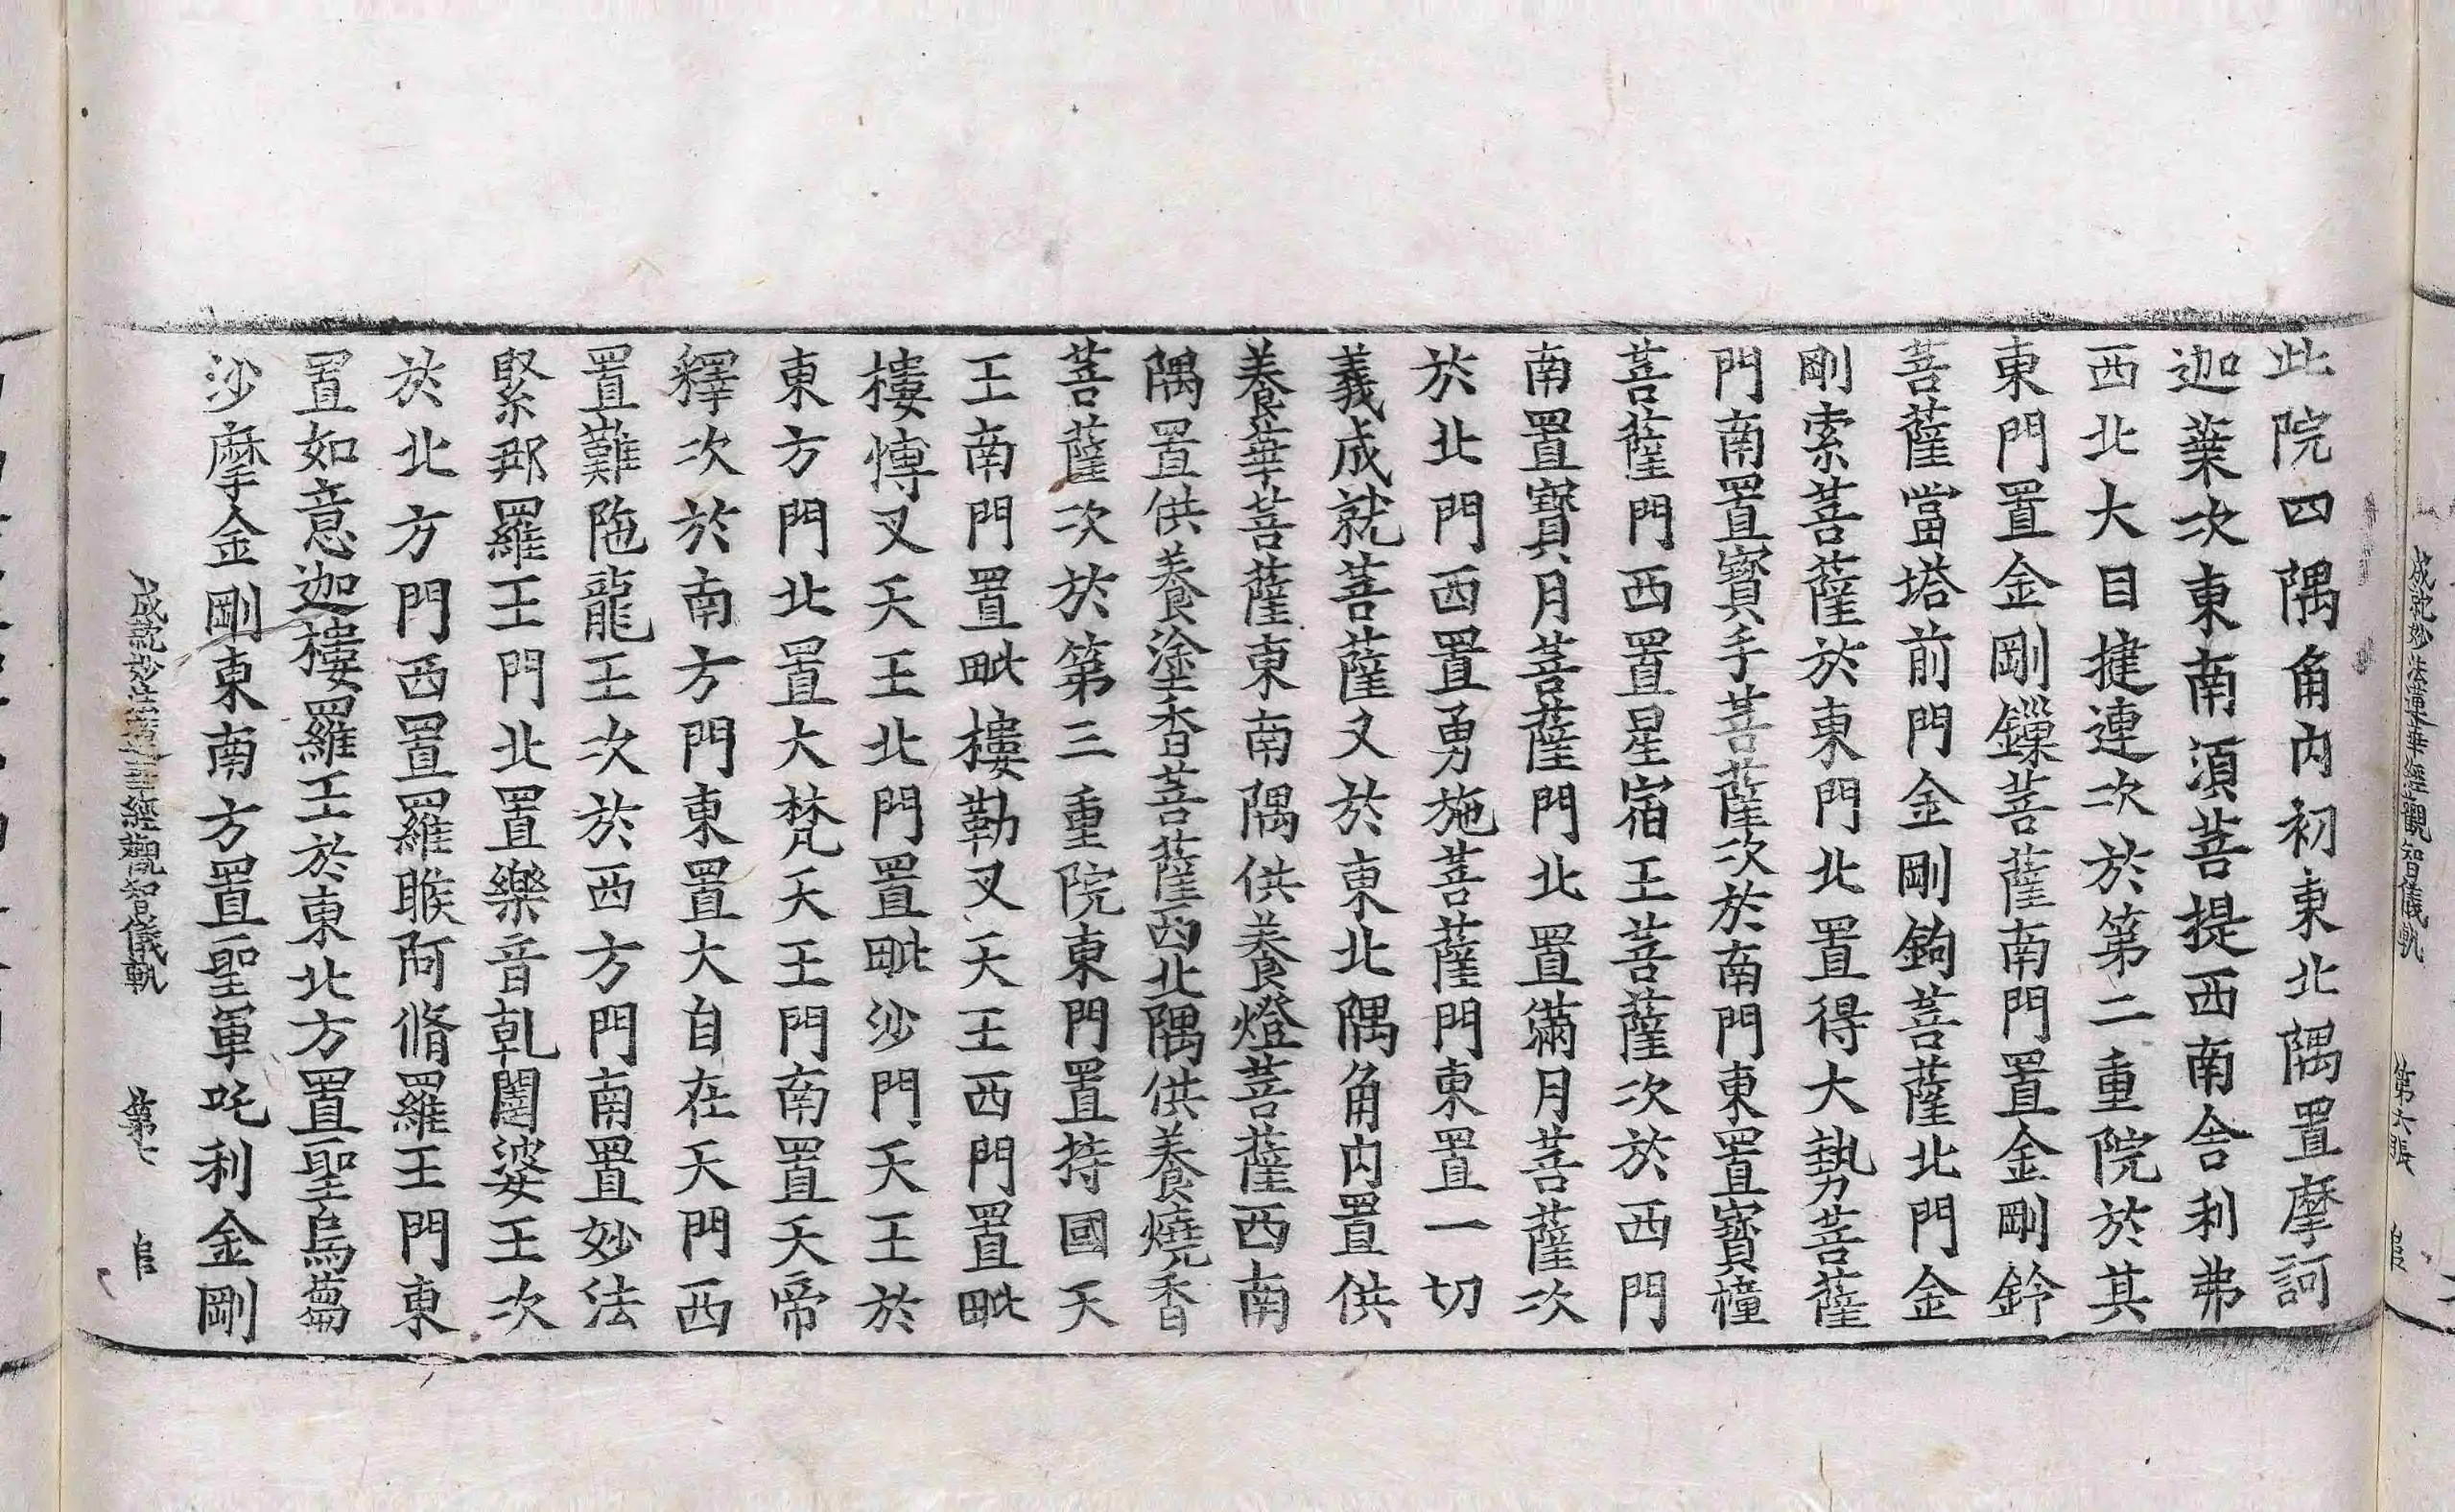 成就妙法蓮華經觀智儀軌 第六張
此院四隅角內初東北隅置摩訶
迦葉次東南須菩提西南舍利弗
西北大目揵連次於第二重院於其
東門置金剛鏁菩薩南門置金剛鈴
菩薩當塔前門金剛鉤菩薩北門金
剛索菩薩於東門北置得大勢菩薩
門南置寶手菩薩次於南門東置寶幢
菩薩門西置星宿王菩薩次於西門
南置寶月菩薩門北置滿月菩薩次
於北門西置勇施菩薩門東置一切
義成就菩薩又於東北隅角內置供
養華菩薩東南隅供養燈菩薩西南
隅置供養塗香菩薩西北隅供養燒香
菩薩次於第三重院東門置持國天
王南門置毗樓勒叉天王西門置毗
樓博叉天王北門置毗沙門天王於
東方門北置大梵天王門南置天帝
釋次於南方門東置大自在天門西
置難陁龍王次於西方門南置妙法
緊那羅王門北置樂音乹闥婆王次
於北方門西置羅睺阿脩羅王門東
置如意迦樓羅王於東北方置聖烏蒭
沙摩金剛東南方置聖軍吒利金剛
成就妙法蓮華經觀智儀軌 第七